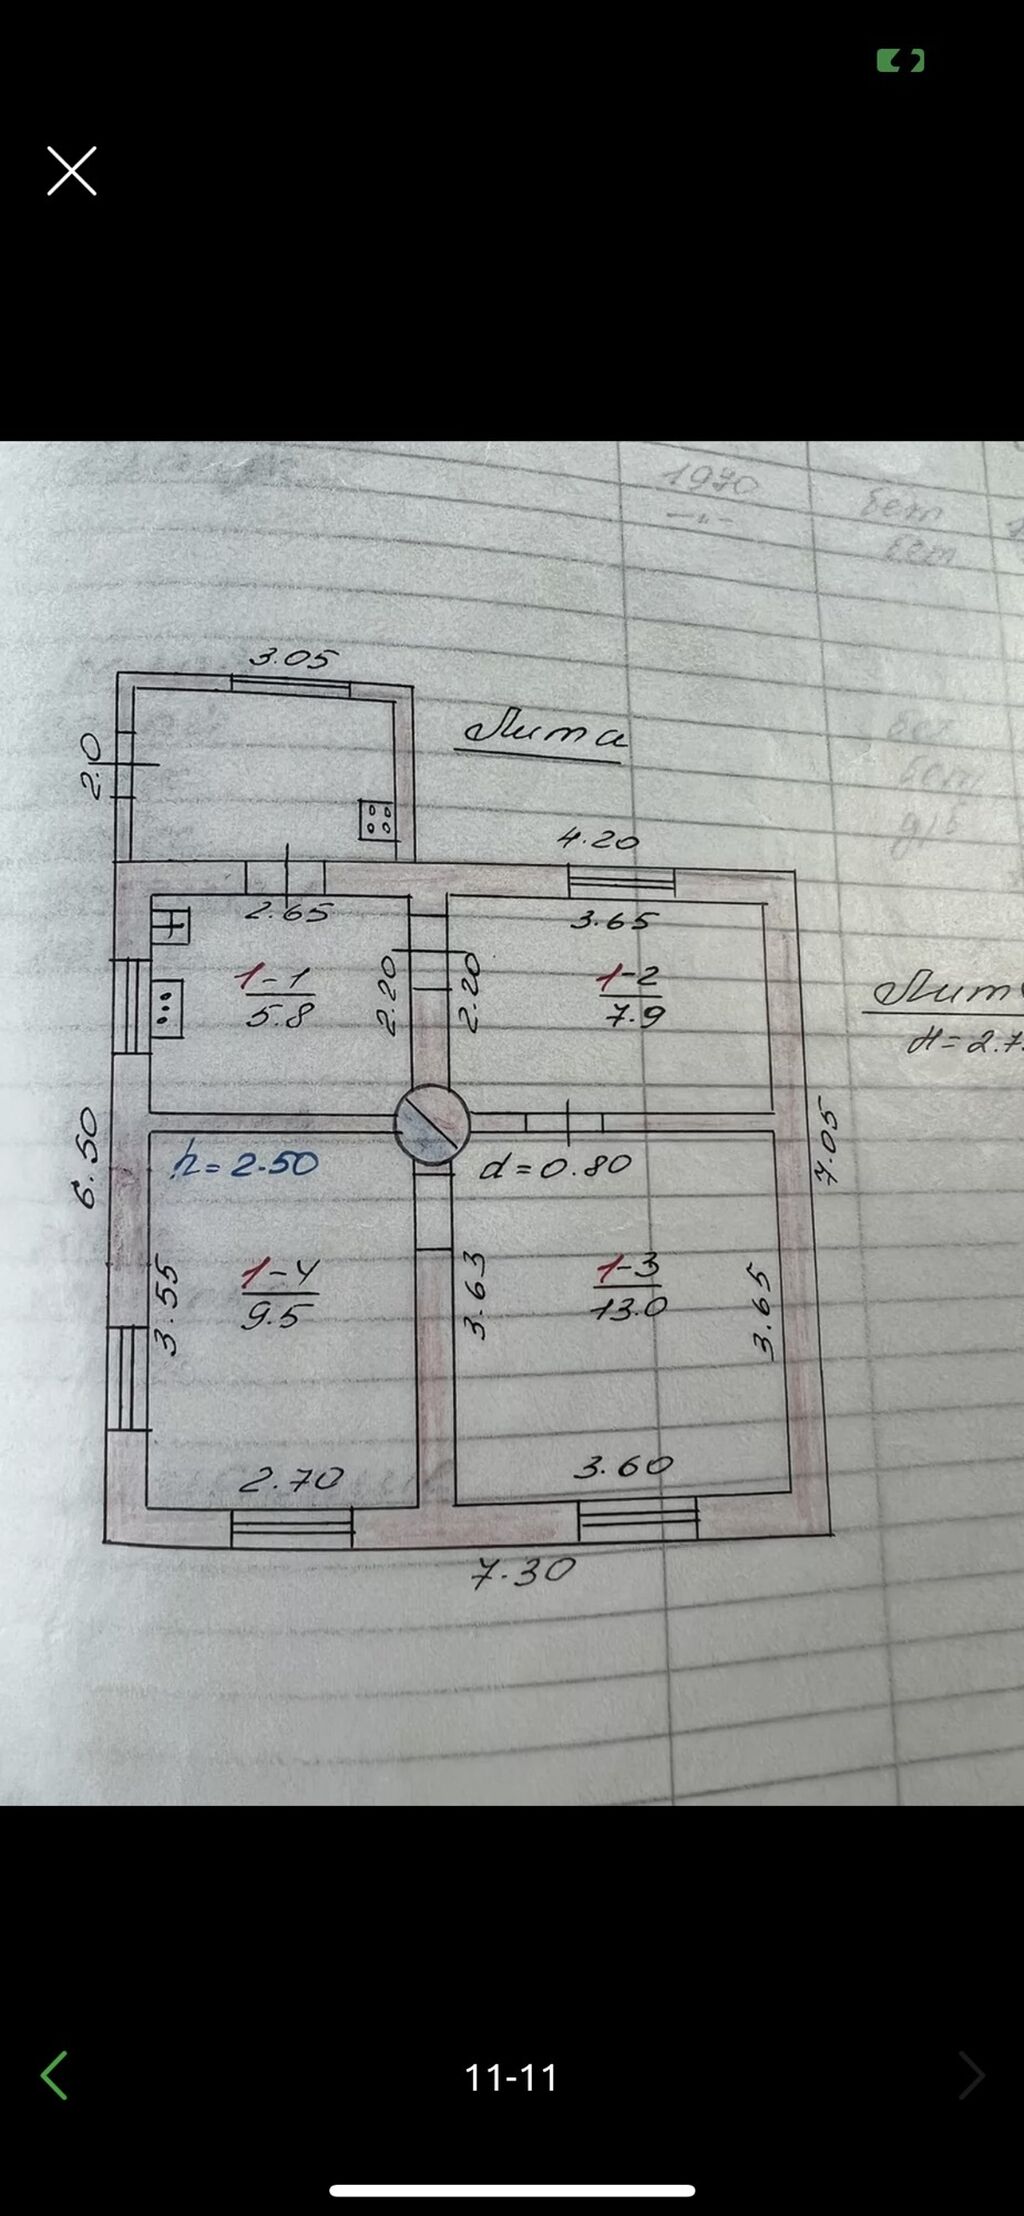 1970
бет
-"-
бет
3.05
Лит а
2.0
4.20
2.65
3.65
1-1
5.8
2.20
2.20
1-2
7.9
Лит
H=2.7
6.50
7.05
h=2.50
d=0.80
3.55
1-4
9.5
3.63
1-3
13.0
3.65
2.70
3.60
7.30
11-11